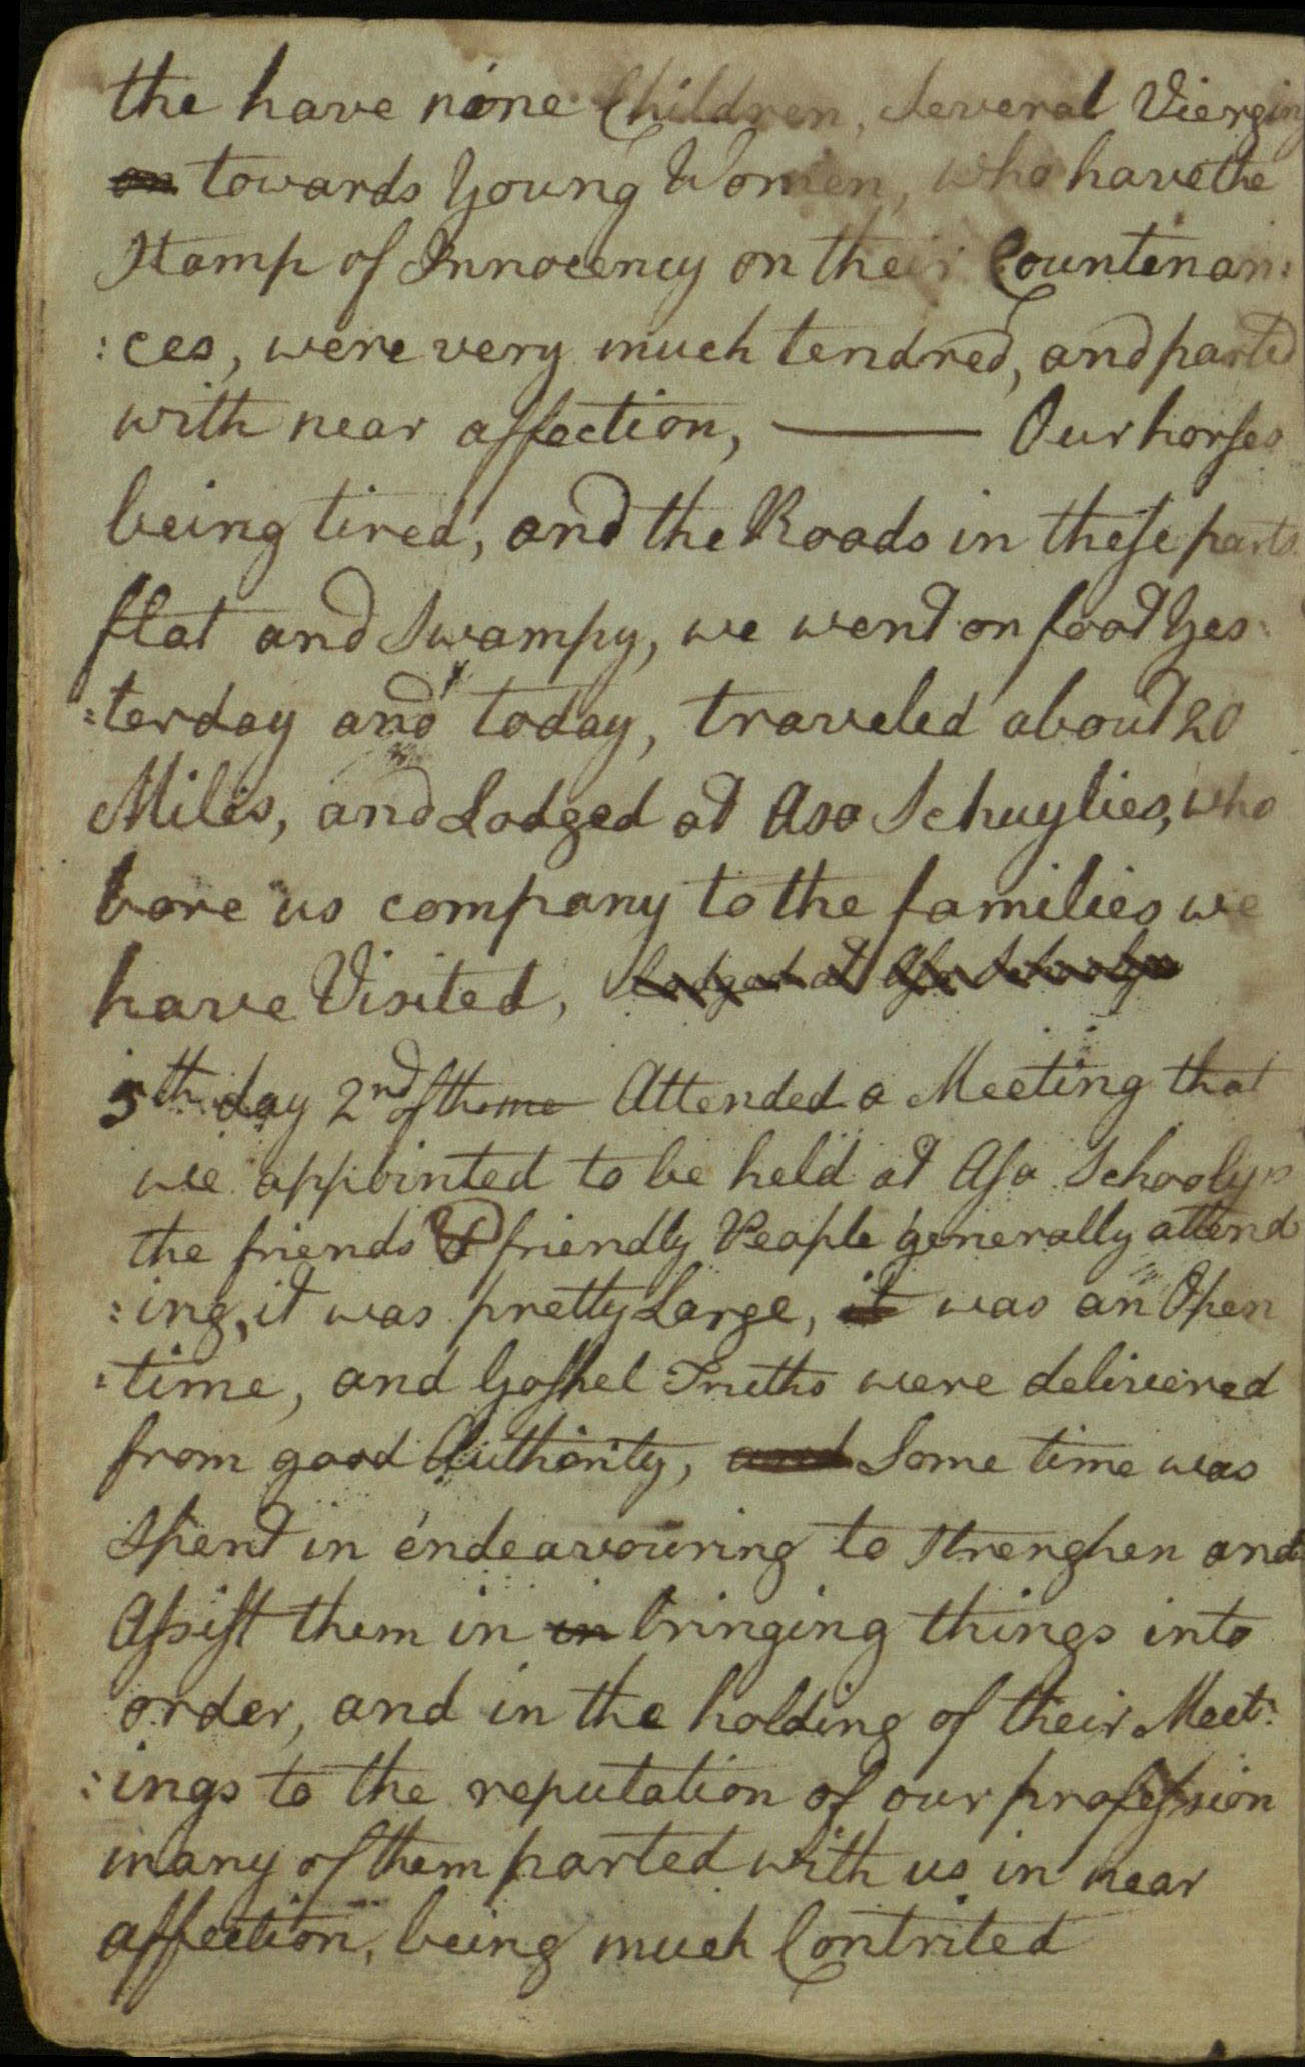 the have nine Children, Several Vierging
on towards Young Women, who have the
Stamp of Innocency on their Countenan:
:ces, were very much tendred, and parted
with near affection, —— Our horses
being tired, and the Roads in these parts
flat and Swampy, we went on foot Yes:
:terday and today, traveled about 20
Miles, and Lodged at Asa Schuylies, who
bore us company to the families we
have Visited, Lodged at Asa Schoolys
5th day 2nd of the mo Attended a Meeting that
we appointed to be held at Asa Schoolys
the friends & friendly People generally attend
:ing, it was pretty Large, it was an Open
:time, and Gospel Truths were delivered
from good Authority, and Some time was
Spent in endeavouring to Strenghen and
Assist them in in bringing things into
order, and in the holding of their Meet:
:ings to the reputation of our profession
many of them parted with us in near
affection, being much Contrited